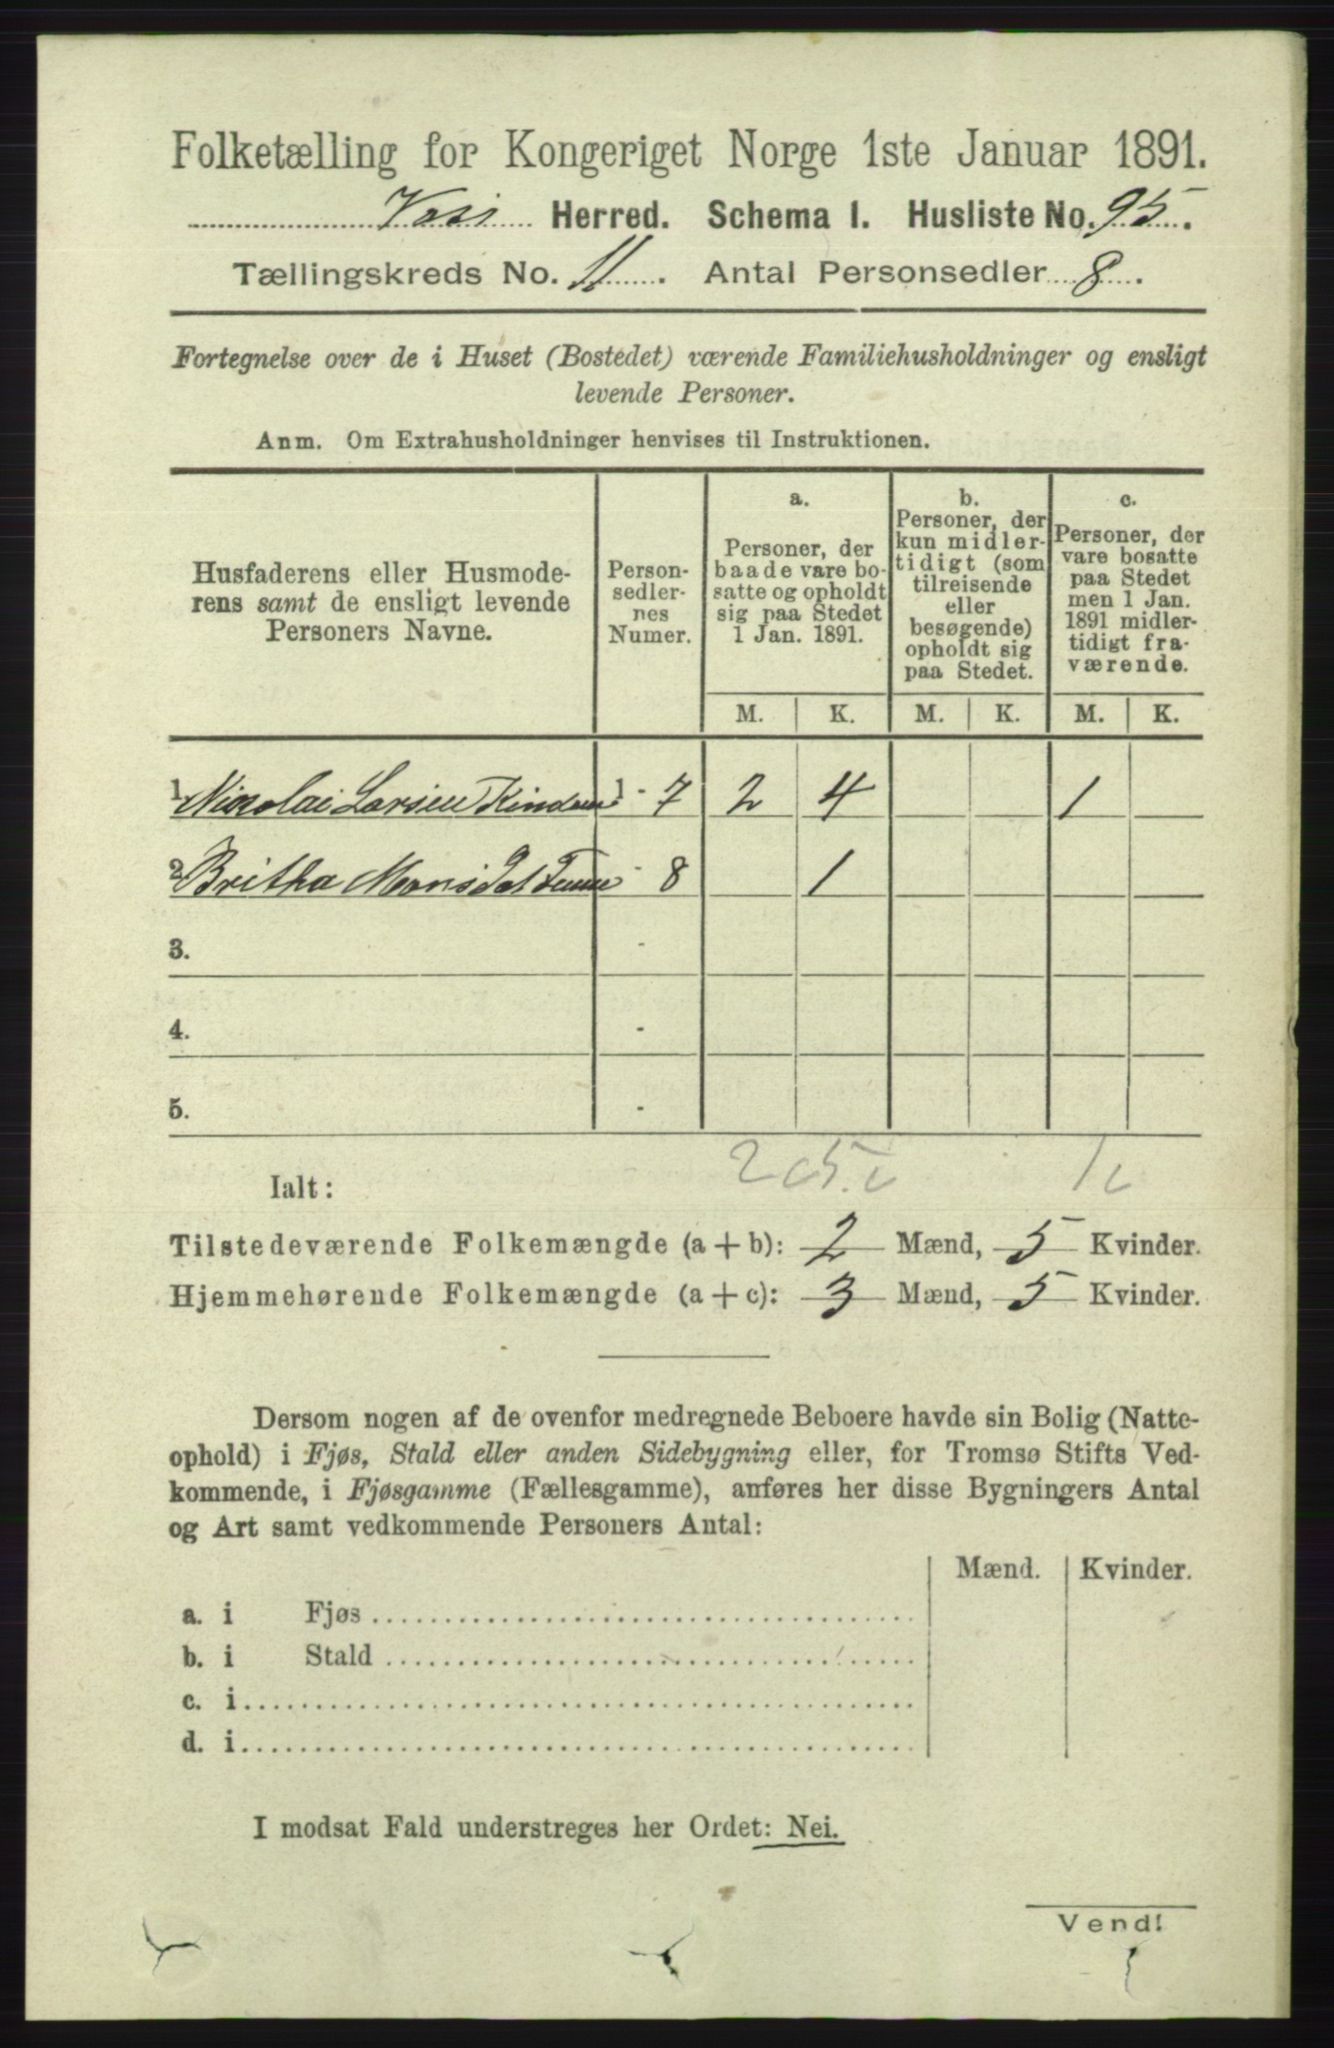 Folketælling for Kongeriget Norge 1ste Januar 1891.
Voss Herred. Schema 1. Husliste No. 95.
Tællingskreds No. 11. Antal Personsedler 8.
Fortegnelse over de i Huset (Bostedet) værende Familiehusholdninger og ensligt
levende Personer.
Anm. Om Extrahusholdninger henvises til Instruktionen.
Husfaderens eller Husmode-
rens samt de ensligt levende
Personers Navne.
Person-
sedler-
nes
Numer.
a.
Personer, der
baade vare bo-
satte og opholdt
sig paa Stedet
1 Jan. 1891.
b.
Personer, der
kun midler-
tidigt (som
tilreisende
eller
besøgende)
opholdt sig
paa Stedet.
c.
Personer, der
vare bosatte
paa Stedet
men 1 Jan.
1891 midler-
tidigt fra-
værende.
M. K. M. K. M. K.
1 Nikolai Larsen 1 - 7 2 4 1
2 Britha Mons 8 1
3. -
4. -
5. -
2 5 1
Ialt:
Tilstedeværende Folkemængde (a + b): 2 Mænd, 5 Kvinder.
Hjemmehørende Folkemængde (a + c): 3 Mænd, 5 Kvinder.
Dersom nogen af de ovenfor medregnede Beboere havde sin Bolig (Natte-
ophold) i Fjøs, Stald eller anden Sidebygning eller, for Tromsø Stifts Ved-
kommende, i Fjøsgamme (Fællesgamme), anføres her disse Bygningers Antal
og Art samt vedkommende Personers Antal:
Mænd. Kvinder.
a. i Fjøs
b. i Stald
c. i
d. i
I modsat Fald understreges her Ordet: Nei.
Vend!